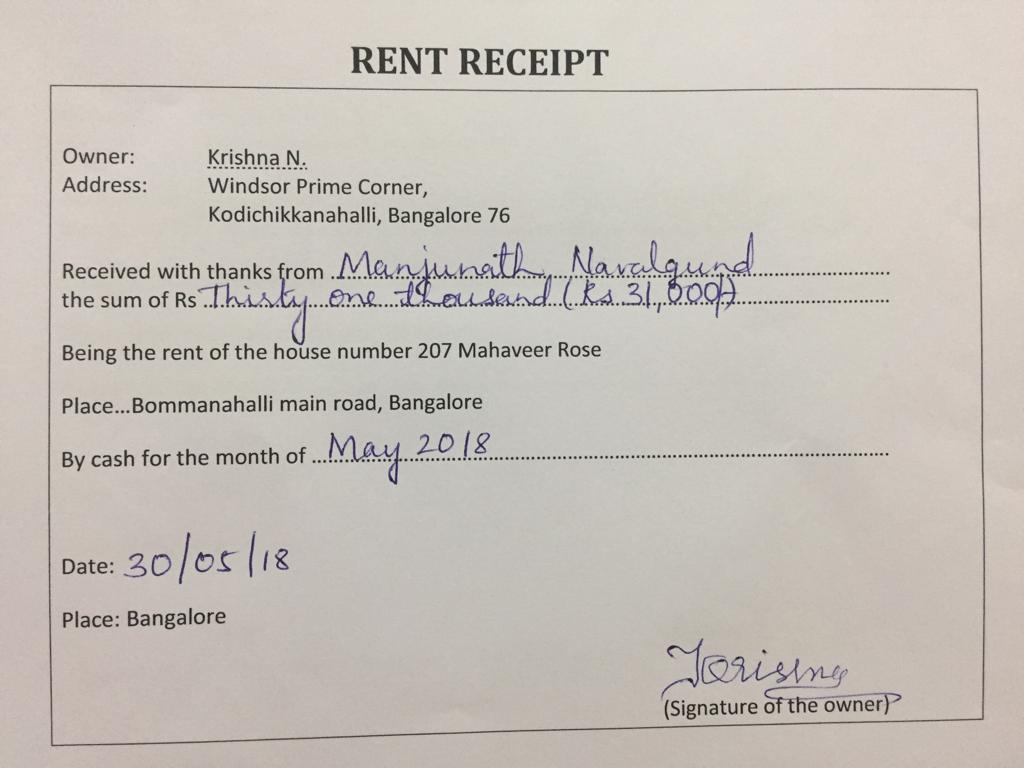 RENT RECEIPT
Owner: Krishna N.
Address: Windsor Prime Corner,
Kodichikkanahalli, Bangalore 76
Received with thanks from ..Manjunath Navalgund..............................
the sum of Rs..Thirty one thousand (Rs. 31,000/-)..............................
Being the rent of the house number 207 Mahaveer Rose
Place...Bommanahalli main road, Bangalore
By cash for the month of ...May 2018..............................
Date: 30/05/18
Place: Bangalore
(Signature of the owner)